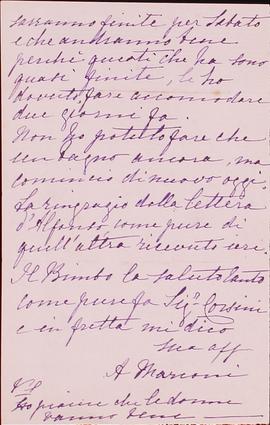 saranno finite per Sabato
e che andranno bene
perchè questi che ha sono
quasi finite, le ho
dovuto fare accomodare
due giorni fa.
Non ho potuto fare che
un bagno ancora, ma
comincio di nuovo oggi.
La ringrazio della lettera
d'Alfonso, come pure di
quell'altra ricevuta ieri.
Il Bimbo la saluta tanto
come pure fa Sigra Corsini
e in fretta mi dico
Sua aff
A Marconi
PS
Ho piacere che le donne
vanno bene